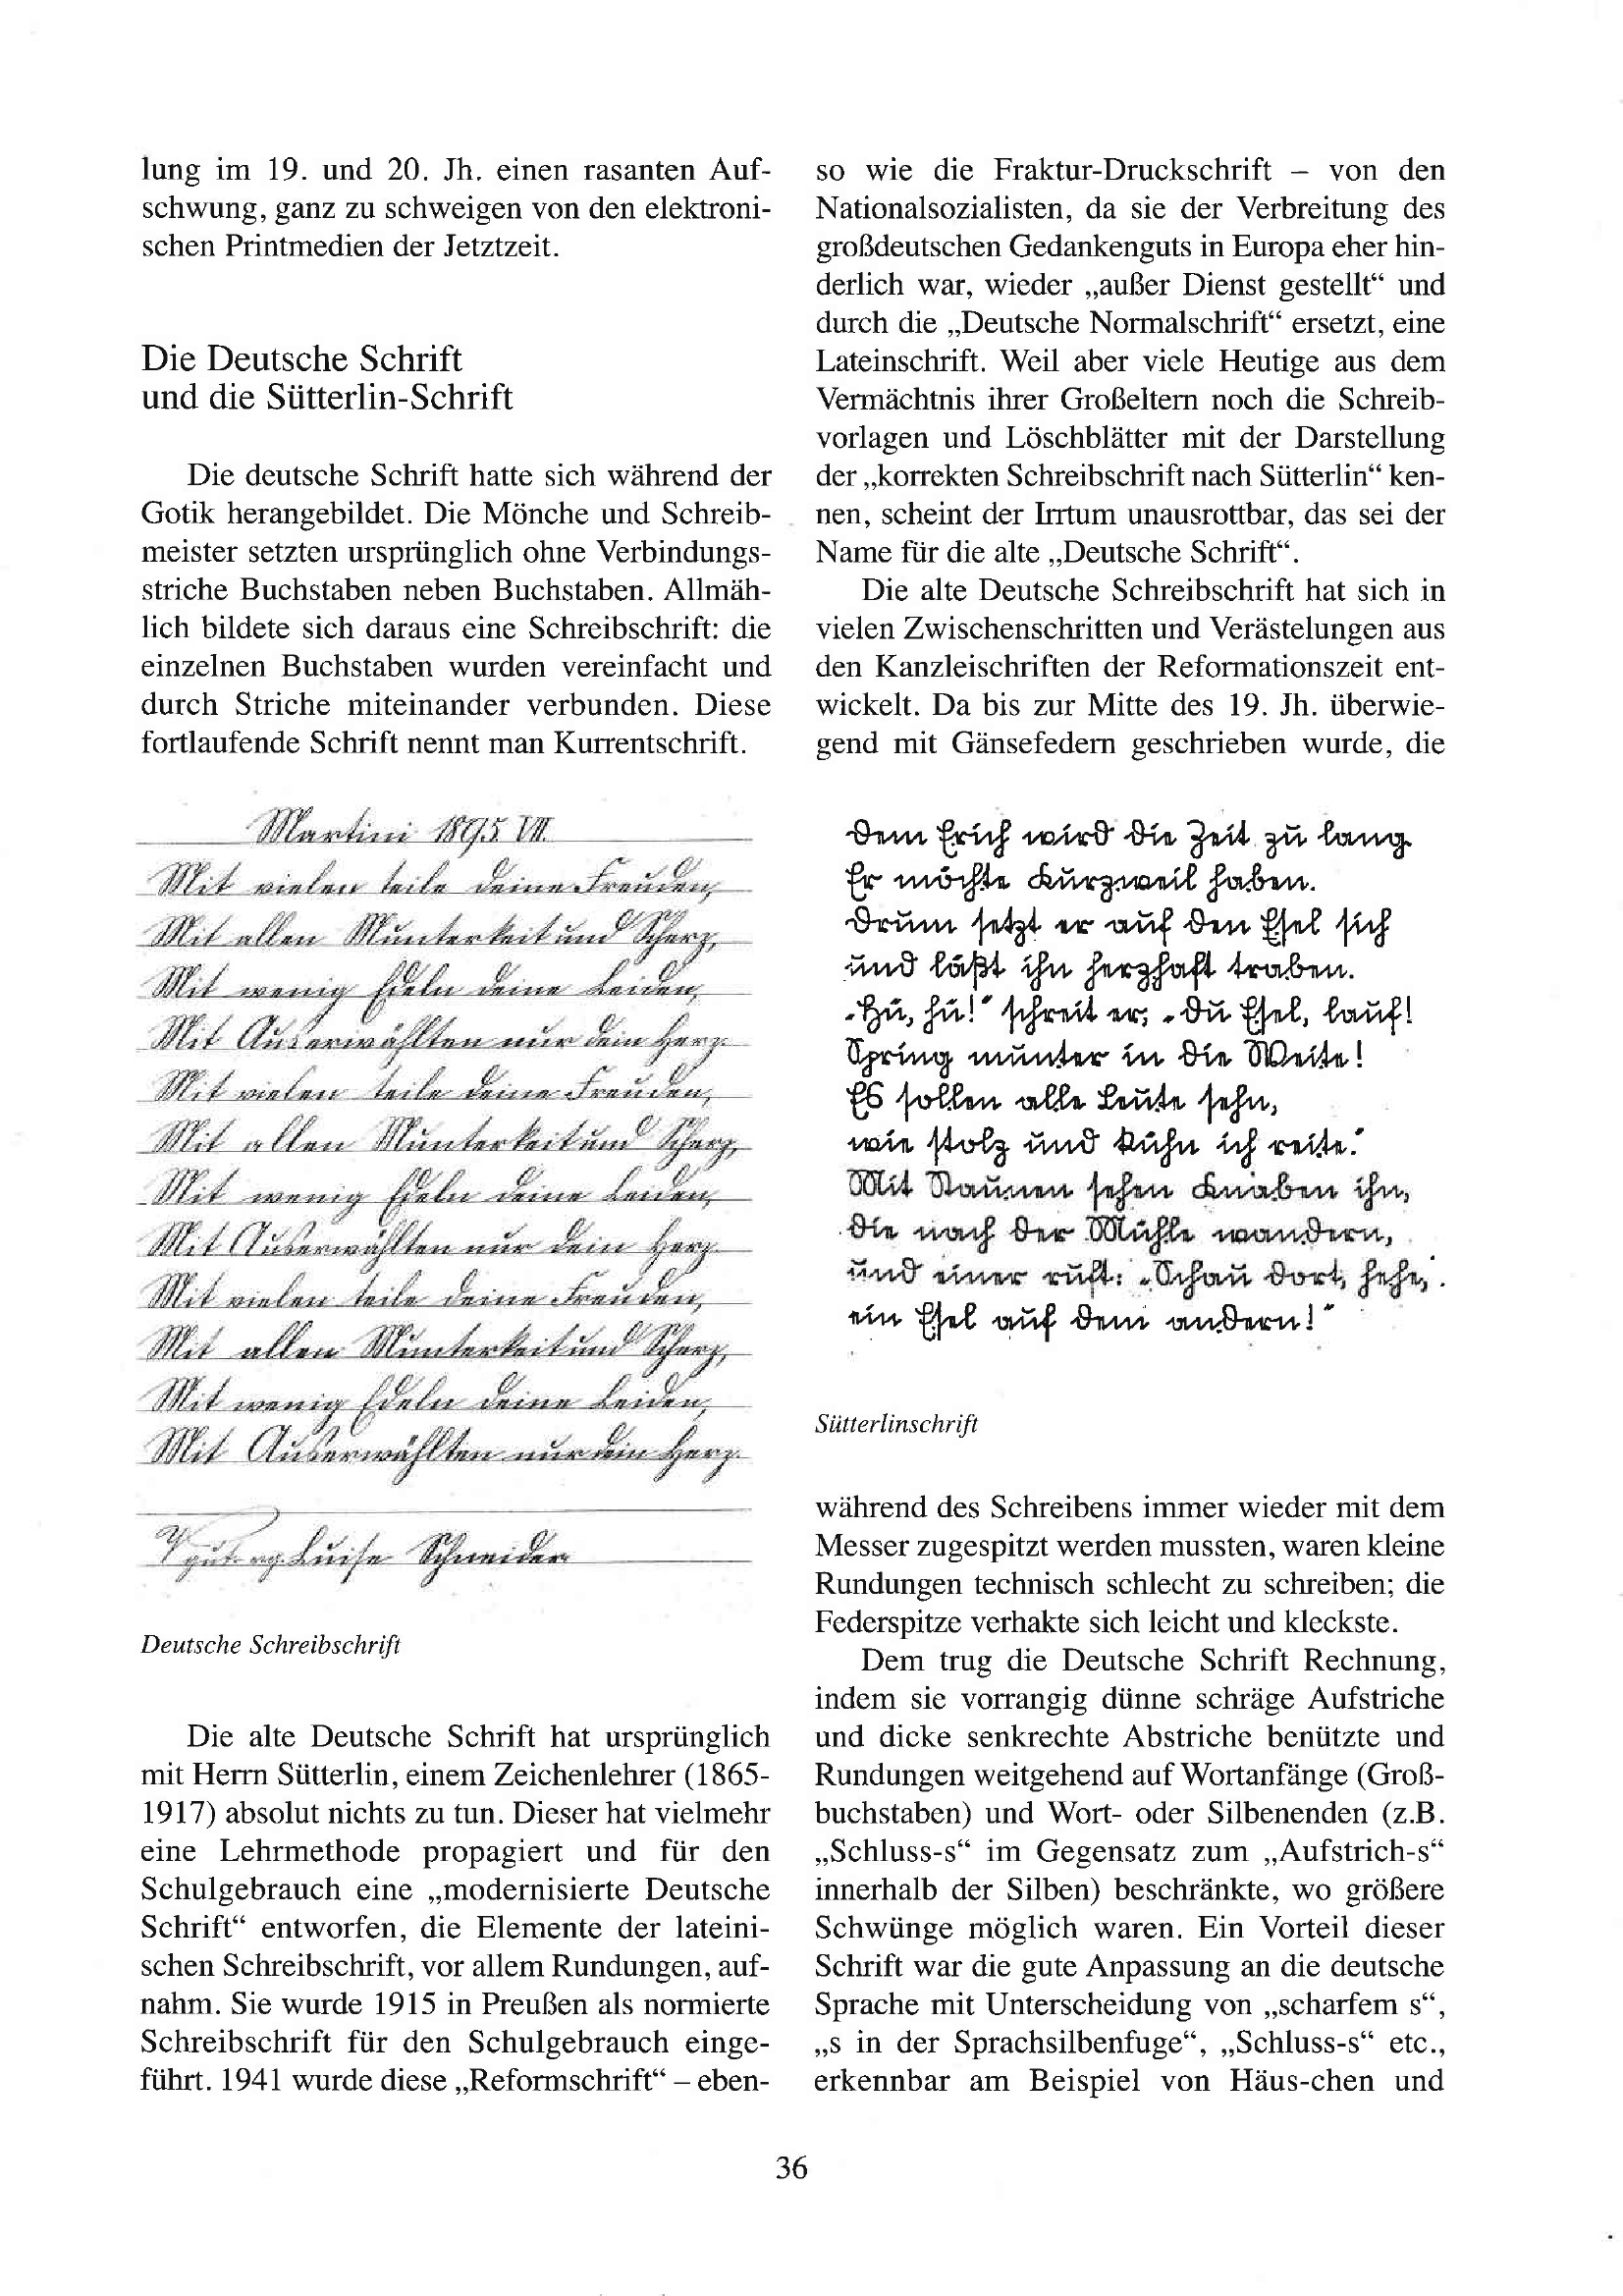 lung im 19. und 20. Jh. einen rasanten Auf-
schwung, ganz zu schweigen von den elektroni-
schen Printmedien der Jetztzeit.
Die Deutsche Schrift
und die Sütterlin-Schrift
Die deutsche Schrift hatte sich während der
Gotik herangebildet. Die Mönche und Schreib-
meister setzten ursprünglich ohne Verbindungs-
striche Buchstaben neben Buchstaben. Allmäh-
lich bildete sich daraus eine Schreibschrift: die
einzelnen Buchstaben wurden vereinfacht und
durch Striche miteinander verbunden. Diese
fortlaufende Schrift nennt man Kurrentschrift.
Martini 1895. VII.
Mit vielen teile deine Freuden,
Mit allen Munterkeit und Scherz,
Mit wenig Edeln deine Leiden,
Mit Auserwählten nur dein Herz.
Mit vielen teile deine Freuden,
Mit allen Munterkeit und Scherz,
Mit wenig Edeln deine Leiden,
Mit Auserwählten nur dein Herz.
Mit vielen teile deine Freuden,
Mit allen Munterkeit und Scherz,
Mit wenig Edeln deine Leiden,
Mit Auserwählten nur dein Herz.
Luise Schneider
Deutsche Schreibschrift
Die alte Deutsche Schrift hat ursprünglich
mit Herrn Sütterlin, einem Zeichenlehrer (1865-
1917) absolut nichts zu tun. Dieser hat vielmehr
eine Lehrmethode propagiert und für den
Schulgebrauch eine „modernisierte Deutsche
Schrift“ entworfen, die Elemente der lateini-
schen Schreibschrift, vor allem Rundungen, auf-
nahm. Sie wurde 1915 in Preußen als normierte
Schreibschrift für den Schulgebrauch einge-
führt. 1941 wurde diese „Reformschrift“ – eben-
so wie die Fraktur-Druckschrift – von den
Nationalsozialisten, da sie der Verbreitung des
großdeutschen Gedankenguts in Europa eher hin-
derlich war, wieder „außer Dienst gestellt“ und
durch die „Deutsche Normalschrift“ ersetzt, eine
Lateinschrift. Weil aber viele Heutige aus dem
Vermächtnis ihrer Großeltern noch die Schreib-
vorlagen und Löschblätter mit der Darstellung
der „korrekten Schreibschrift nach Sütterlin“ ken-
nen, scheint der Irrtum unausrottbar, das sei der
Name für die alte „Deutsche Schrift“.
Die alte Deutsche Schreibschrift hat sich in
vielen Zwischenschritten und Verästelungen aus
den Kanzleischriften der Reformationszeit ent-
wickelt. Da bis zur Mitte des 19. Jh. überwie-
gend mit Gänsefedern geschrieben wurde, die
Dem Erich wird die Zeit zu lang.
Er möchte Kurzweil haben.
Drum setzt er auf den Esel sich
und läßt ihn herzhaft traben.
„Hü, hü!“ schreit er, „Du Esel, lauf!
Spring munter in die Weite!
Es sollen alle Leute sehn,
wie stolz und kühn ich reite.“
Mit Staunen sehen Knaben ihn,
die nach der Mühle wandern,
und einer ruft: „Schau dort, hehe,
ein Esel auf dem andern!“
Sütterlinschrift
während des Schreibens immer wieder mit dem
Messer zugespitzt werden mussten, waren kleine
Rundungen technisch schlecht zu schreiben; die
Federspitze verhakte sich leicht und kleckste.
Dem trug die Deutsche Schrift Rechnung,
indem sie vorrangig dünne schräge Aufstriche
und dicke senkrechte Abstriche benützte und
Rundungen weitgehend auf Wortanfänge (Groß-
buchstaben) und Wort- oder Silbenenden (z.B.
„Schluss-s“ im Gegensatz zum „Aufstrich-s“
innerhalb der Silben) beschränkte, wo größere
Schwünge möglich waren. Ein Vorteil dieser
Schrift war die gute Anpassung an die deutsche
Sprache mit Unterscheidung von „scharfem s“,
„s in der Sprachsilbenfuge“, „Schluss-s“ etc.,
erkennbar am Beispiel von Häus-chen und
36